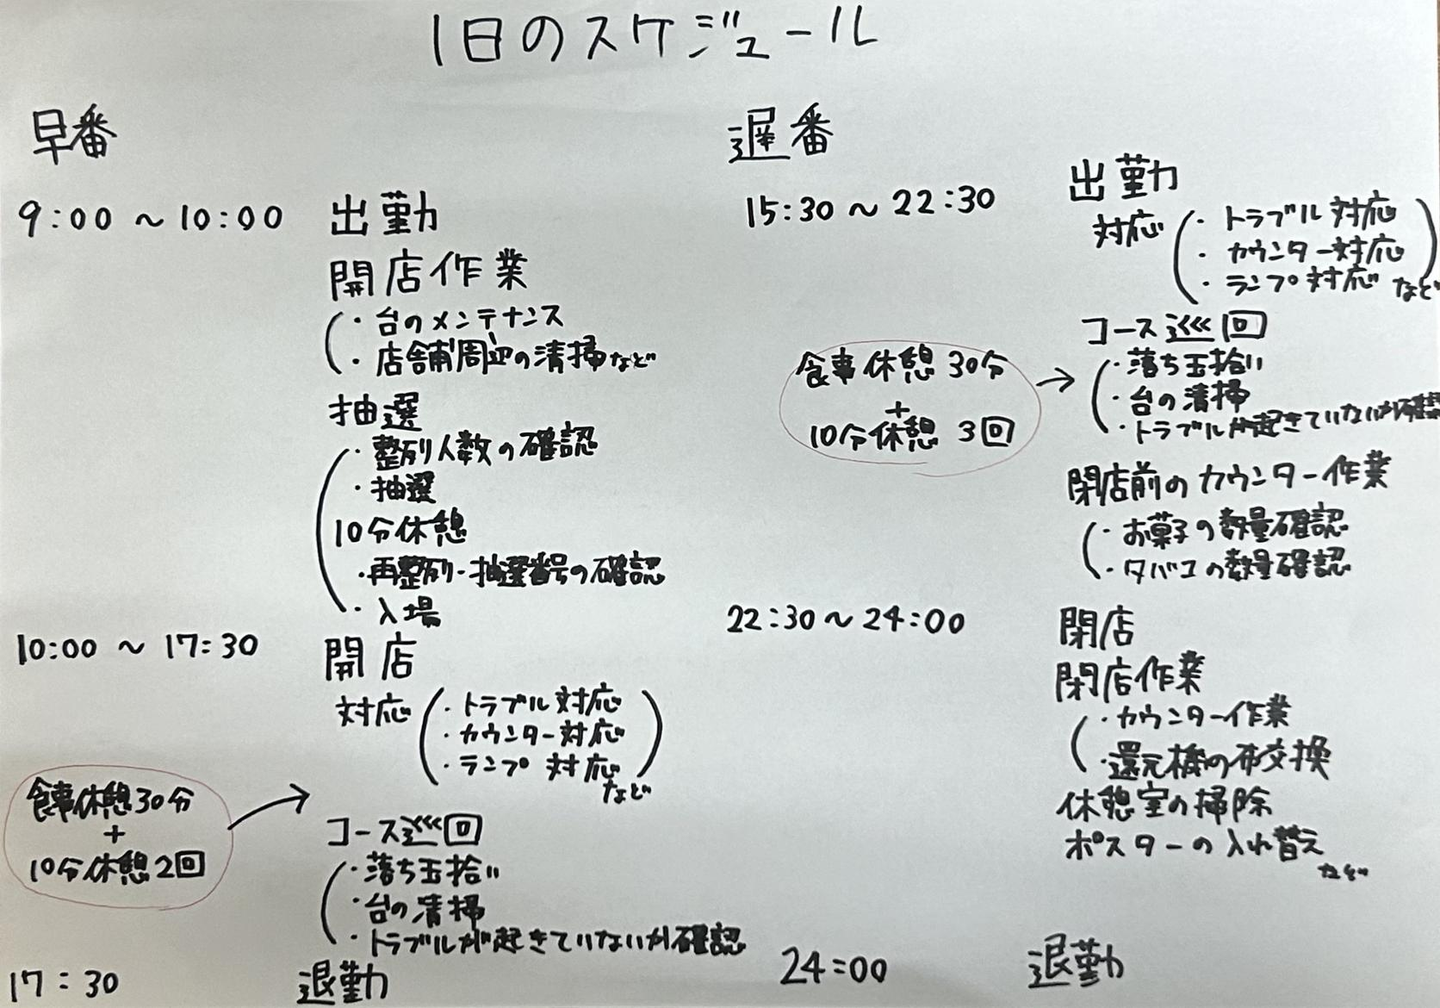 1日のスケジュール
早番
9:00 ~ 10:00 出勤
開店作業
・台のメンテナンス
・店舗周辺の清掃など
抽選
・整列人数の確認
・抽選
10分休憩
・再整列・抽選番号の確認
・入場
10:00 ~ 17:30 開店
対応
・トラブル対応
・カウンター対応
・ランプ対応
など
食事休憩30分
+
10分休憩2回
コース巡回
・落ち玉拾い
・台の清掃
・トラブルが起きていないか確認
17:30 退勤
遅番
15:30 ~ 22:30 出勤
対応
・トラブル対応
・カウンター対応
・ランプ対応 など
食事休憩30分
+
10分休憩 3回
コース巡回
・落ち玉拾い
・台の清掃
・トラブルが起きていないか確認
閉店前のカウンター作業
・お菓子の数量確認
・タバコの数量確認
22:30 ~ 24:00 閉店
閉店作業
・カウンター作業
・還元機の布交換
休憩室の掃除
ポスターの入れ替え
など
24:00 退勤